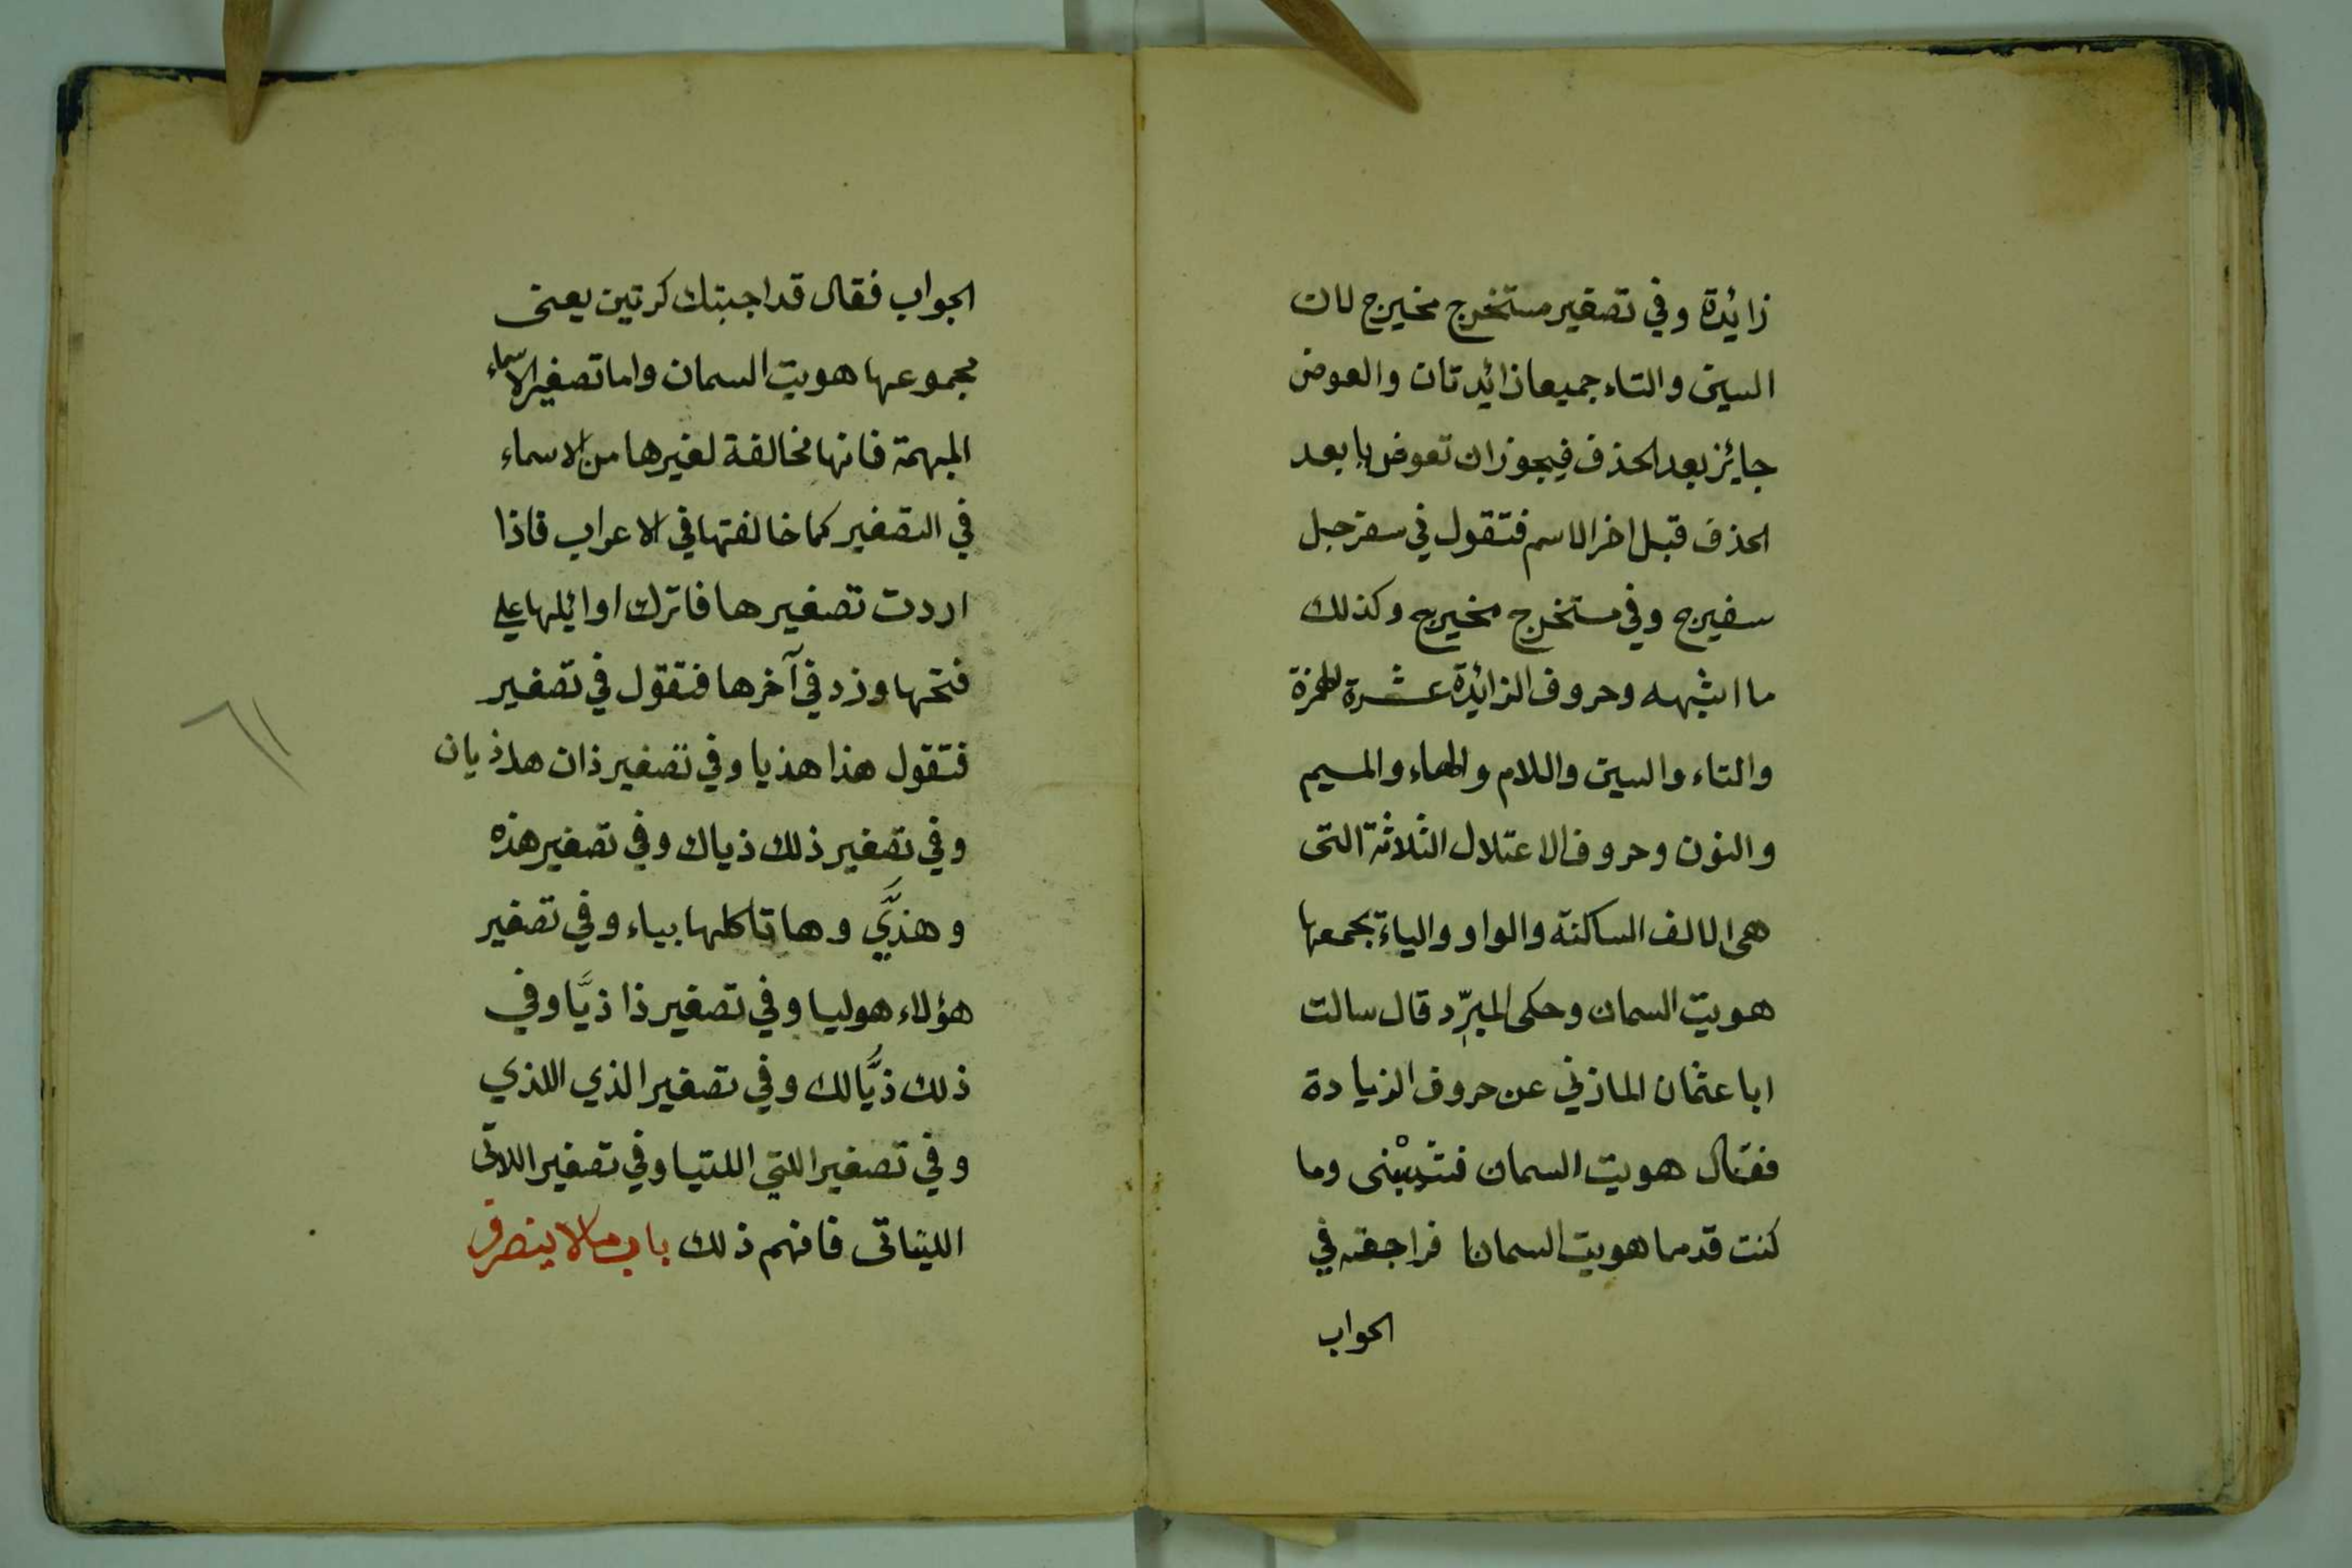 زائدة وفي تصغير مستخرج مخيرج لان
السين والتاء جميعا زائدتان والعوض
جايز بعد الحذف فيجوز ان تعوض يا بعد
الحذف قبل اخر الاسم فتقول في سفرجل
سفيرج وفي مستخرج مخيرج وكذلك
ما اشبهه وحروف الزائدة عشرة الهمزة
والتاء والسين واللام والهاء والميم
والنون وحروف الاعتلال الثلاثة التى
هى الالف الساكنة والواو والياء تجمعها
هويت السمان وحكى المبرّد قال سالت
ابا عثمان المازني عن حروف الزيادة
فقال هويت السمان فشيبْنى وما
كنت قدما هويت السمانا فراجعته في
الحواب
الجواب فقال قد اجبتك كرتين يعنى
مجموعها هويت السمان واما تصغير الاسماء
المبهمة فانها مخالفة لغيرها من الاسماء
في التصغير كما خالفتها في الاعراب فاذا
اردت تصغيرها فاترك اوائلها على
فتحها وزد في آخرها فتقول في تصغير
فتقول هذا هذيا وفي تصغير ذان هاذيان
وفي تصغير ذلك ذياك وفي تصغير هذه
وهذيَّ وهاتا كلها بياء وفي تصغير
هؤلاء هوليا وفي تصغير ذا ذيَّا وفي
ذلك ذيَّالك وفي تصغير الذي اللذي
وفي تصغير اللتي اللتيا وفي تصغير اللاتى
الليتاتى فافهم ذلك باب ما لا ينصرف
٦١